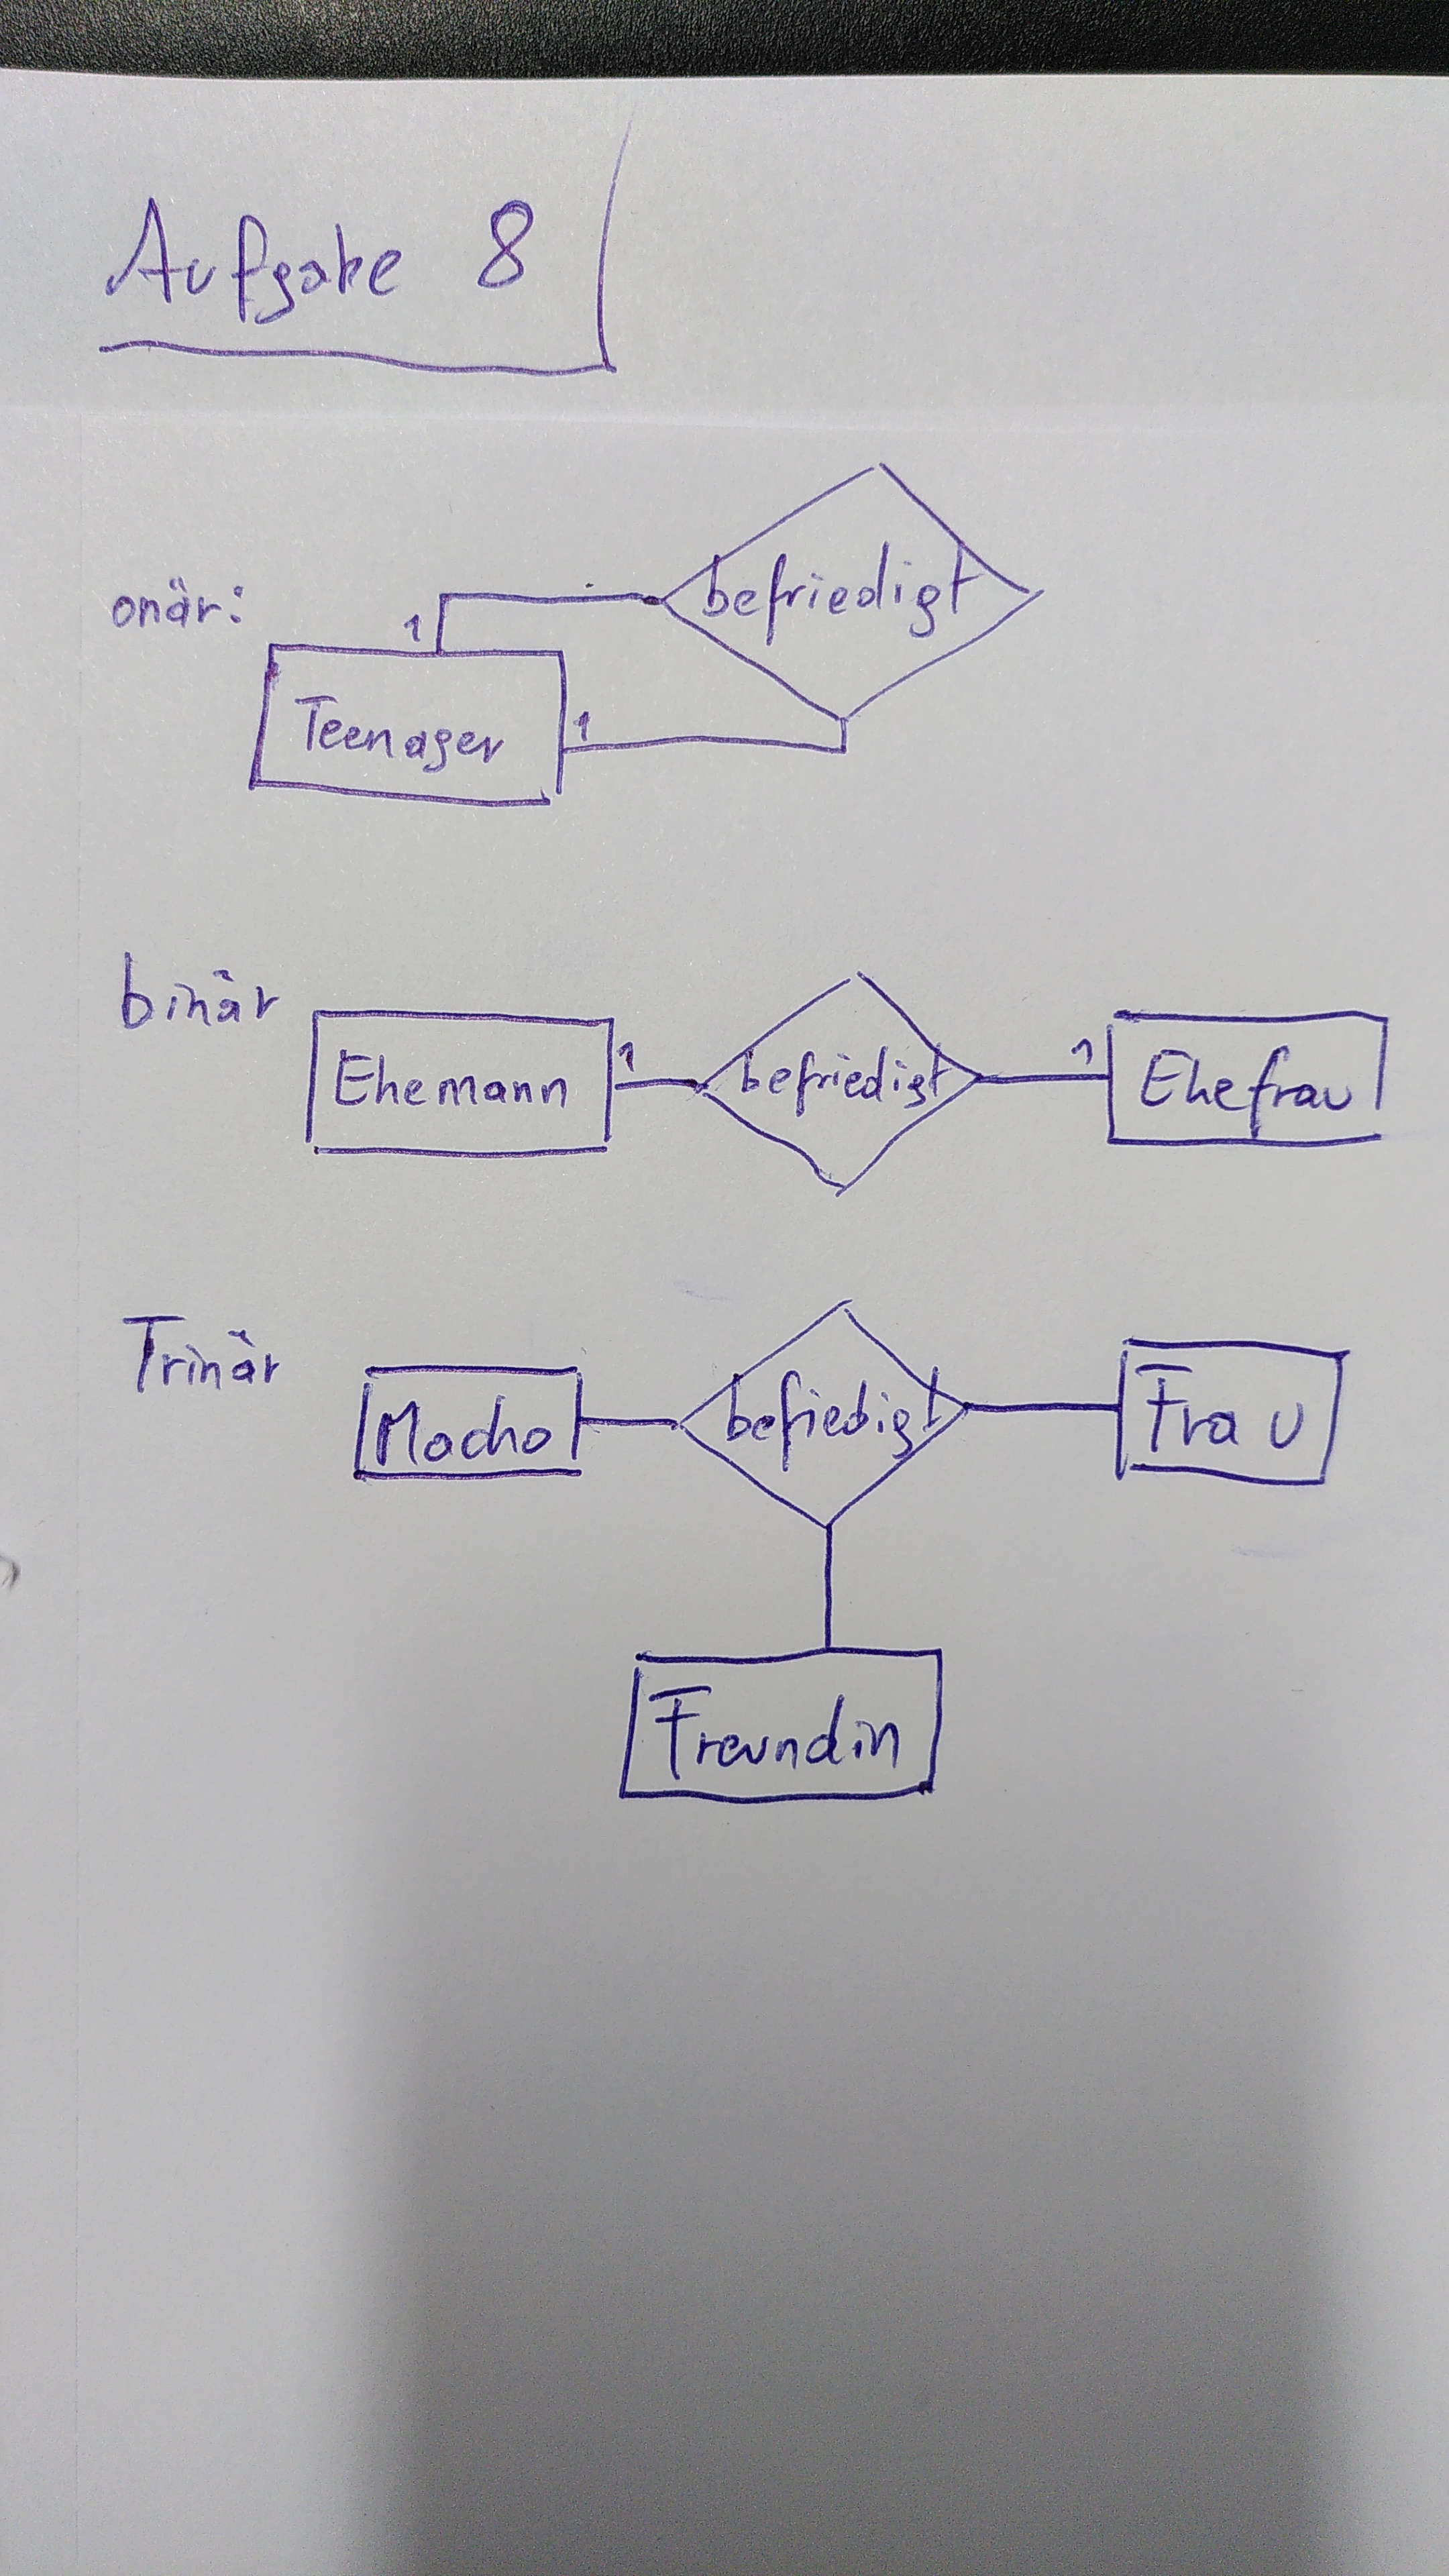 Aufgabe 8
onär:
befriedigt
1
Teenager
1
binär
Ehemann 1 befriedigt 1 Ehefrau
Trinär
Macho befiedigt Frau
Freundin